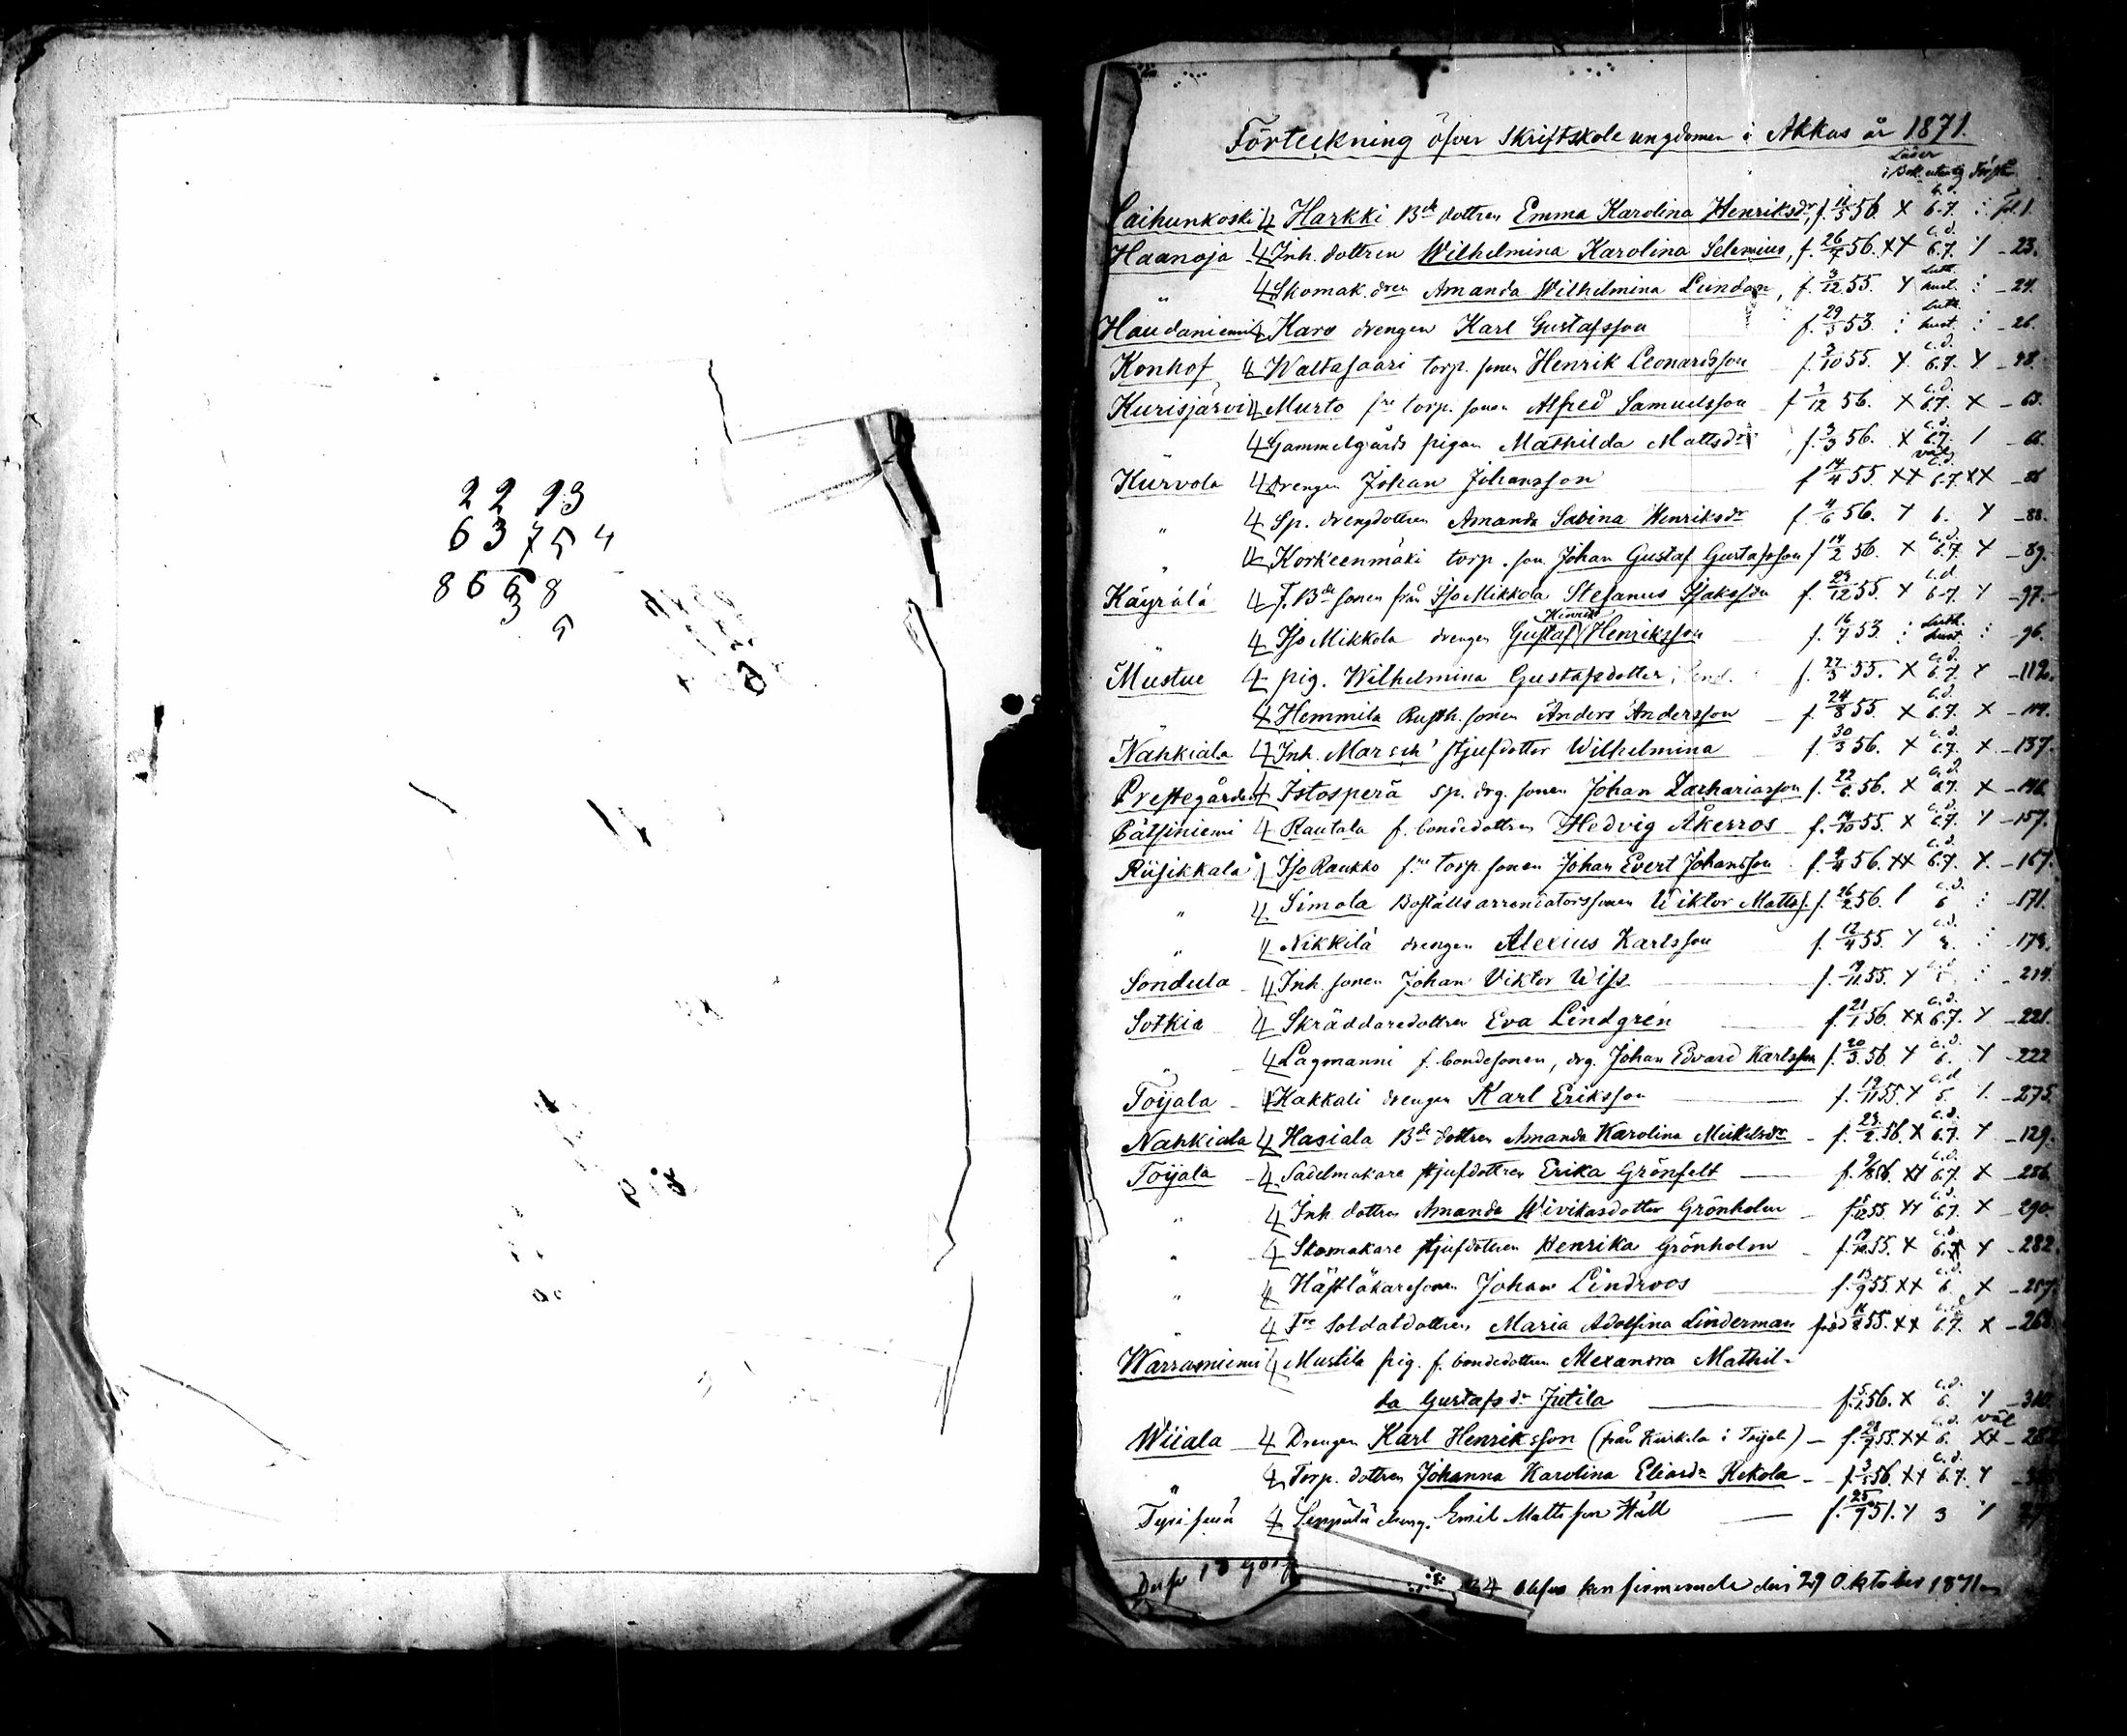 2 2 93
6 3 7 5 4
8 6 6 8
3
5
Förteckning öfver Skriftskole ungdomen i Akkas år 1871.
Läser
i Bok utanlg Förstår
Laihunkoski 4 Harkki Bde dottren Emma Karolina Henriksdr, f. 11/5 56. X c.d. 6.7. : Pl. 1.
Haanoja 4 Inh. dottren Wilhelmina Karolina Selenius, f. 26/7 56. XX c.d. 6.7. / - 23.
" 4 Skomak. dren Amanda Wilhelmina Lundan, f. 3/12 55. Y Luth. hust. : - 24.
Haudaniemi 4 Karo drengen Karl Gustafsson f. 29/5 53. : Luth. hust. : - 26.
Konhof 4 Waltasaari torp. sonen Henrik Leonardsson f. 3/10 55. Y c.d. 6.7. Y - 48.
Kurisjärvi 4 Murto fre torp. sonen Alfred Samuelsson f 3/12 56. X c.d. 6.7. X - 63.
" 4 Gammelgårds pigan Mathilda Mattsdr f. 3/3 56. X c.d. 6.7. / - 66.
Kurvola 4 Drengen Johan Johansson f 14/4 55. XX väl c.d. 6.7. XX - 86
" 4 Sp. drengdottren Amanda Sabina Henriksdr f. 4/6 56. Y 6. Y - 88.
" 4 Korkeenmäki torp. son Johan Gustaf Gustafsson f 14/2 56. X c.d. 6.7. Y - 89.
Käyrälä 4 F. Bde sonen från IsoMikkola Stefanus Isaksson f. 29/12 55. Y c.d. 6.7. Y - 97.
Henrik
" 4 Iso Mikkola drengen Gustaf Henriksson f. 16/7 53. : Luth. hust : - 96.
Mustue 4 pig. Wilhelmina Gustafsdotter f. 27/3 55. X c.d. 6.7. Y - 112.
" 4 Hemmila Rusth. sonen Anders Andersson f. 24/8 55. X c.d. 6.7. X - 114.
Nahkiala 4 Inh. Marsch' styfdotter Wilhelmina f. 30/3 56. X c.d. 6.7. X - 137.
Prestegården 4 Istosperä sp. drg. sonen Johan Zachariasson f. 22/6 56. X c.d. 6.7. X - 146.
Pätsiniemi 4 Rautala f. bondedottren Hedvig Åkerros f. 14/10 55. X c.d. 6.7. Y - 157.
Riisikkala 4 Iso Raukko fre torp. sonen Johan Evert Johansson f. 9/4 56. XX c.d. 6.7. X. - 167.
" 4 Simola Boställsarrendatorssonen Wiktor Mattss. f. 26/2 56. / c.d. 6 : - 171.
" 4 Nikkilä drengen Alexius Karlsson f. 12/4 55. Y c.d. 3. : - 173.
Sondula 4 Inh. sonen Johan Viktor Wiss f. 19/11 55. Y : - 214.
Sotkia 4 Skräddaredottren Eva Lindgrén f. 21/1 56. XX c.d. 6.7. Y - 221.
" 4 Lagmanni f. bondesonen, drg. Johan Edvard Karlsson f. 20/3 56. Y c.d. 6. Y - 222
Toijala 4 Kakkali drengen Karl Eriksson f. 19/11 55. Y c.d. 5. /. - 275.
Nahkiala 4 Hasiala Bde dottren Amanda Karolina Mickelsdr f. 23/2 56. X c.d. 6.7. Y - 129.
Toijala 4 Sadelmakare styfdottren Erika Grönfelt f. 56. XX c.d. 6.7. X - 256.
" 4 Inh. dottren Amanda Wivikasdotter Grönholm f. 5/12 55. XX c.d. 6.7. X - 290.
" 4 Skomakare styfdottren Henrika Grönholm f. 55. X c.d. 6.7. Y - 282.
" 4 Hästläkaresonen Johan Lindroos f. 13/9 55. XX c.d. 6. X - 257.
" 4 Fre Soldatdottren Maria Adolfina Linderman född 11/8 55. XX c.d. 6.7. X - 268
Warrasniemi 4 Mustila pig. f. bondedottren Alexandra Mathil-
da Gustafsdr Jutila f. 56. X c.d. 6. Y - 310.
Wiiala 4 Drengen Karl Henriksson (från Kurkela i Toijala) - f. 55. XX c.d. 6. väl XX - 
" 4 Torp. dottren Johanna Karolina Eliasdr Ketola f. 56. XX c.d. 6.7. Y
4 Seppälä dreng. Emil Mattsson Häll f. 25/9 51. Y 3 /
34 blefvo konfirmerade den 29 Oktober 1871